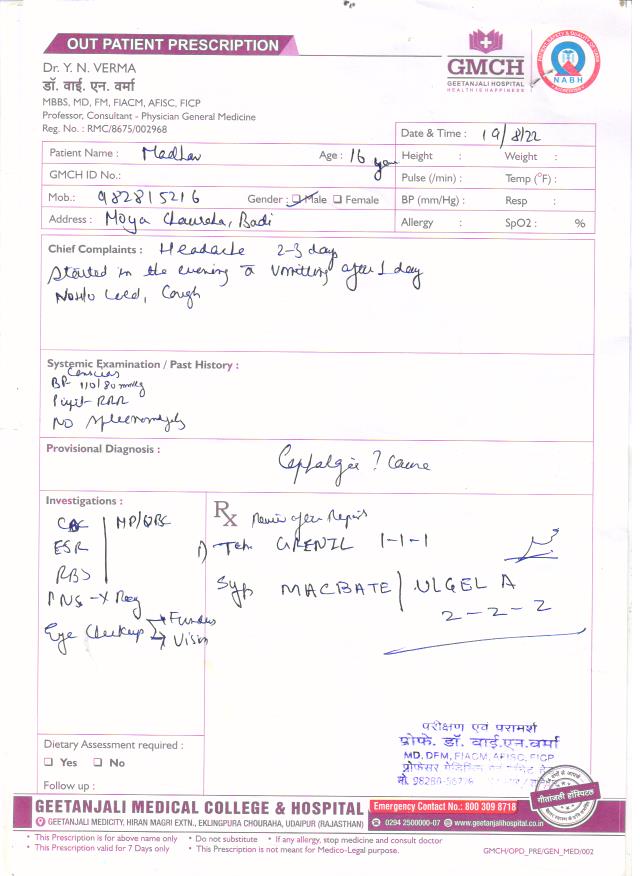 OUT PATIENT PRESCRIPTION
Dr. Y. N. VERMA
डॉ. वाई. एन. वर्मा
MBBS, MD, FM, FIACM, AFISC, FICP
Professor, Consultant - Physician General Medicine
Reg. No. : RMC/8675/002968
GMCH
GEETANJALI HOSPITAL
HEALTH IS HAPPINESS
NABH
Date & Time : 19/8/22
Patient Name : Madhav Age : 16 year
Height : Weight :
GMCH ID No.:
Pulse (/min) : Temp (°F) :
Mob.: 982815216 Gender : ☐ Male ☐ Female
BP (mm/Hg) : Resp :
Address : Moya Chauraha, Badi
Allergy : SpO2 : %
Chief Complaints : Headache 2-3 days
Started in the evening c̄ vomitting after 1 day
No H/o Cold, Cough
Systemic Examination / Past History :
Conscious
BP- 110/80 mmHg
Pupil- RRR
NO Spleenomegaly
Provisional Diagnosis :
Cephalgia ? Cause
Investigations :
CBC MP/QBC
ESR
RBS
PNS - X Ray
Eye Checkup → Fundus
→ Vision
Rx Review after Reports
1) Tab. GRENIL 1-1-1
Syp MACBATE / ULGEL A
2-2-2
परीक्षण एवं परामर्श
प्रोफे. डॉ. वाई.एन.वर्मा
MD, DFM, FIACM, AFISC, FICP
प्रोफेसर मेडिसिन
मो. 98280-
गीतांजली हॉस्पिटल
Dietary Assessment required :
☐ Yes ☐ No
Follow up :
GEETANJALI MEDICAL COLLEGE & HOSPITAL
Emergency Contact No.: 800 309 8718
GEETANJALI MEDICITY, HIRAN MAGRI EXTN., EKLINGPURA CHOURAHA, UDAIPUR (RAJASTHAN)
0294 2500000-07 www.geetanjalihospital.co.in
• This Prescription is for above name only • Do not substitute • If any allergy, stop medicine and consult doctor
• This Prescription valid for 7 Days only • This Prescription is not meant for Medico-Legal purpose.
GMCH/OPD_PRE/GEN_MED/002